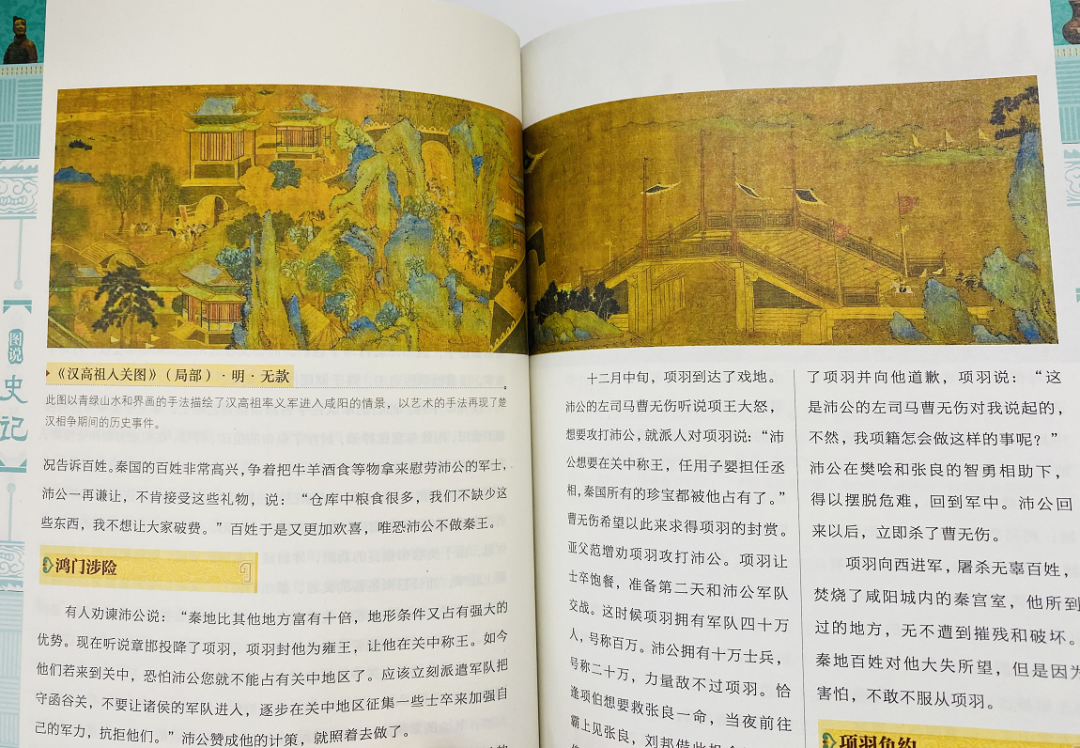 图说
史记
《汉高祖入关图》（局部）·明·无款
此图以青绿山水和界画的手法描绘了汉高祖率义军进入咸阳的情景，以艺术的手法再现了楚
汉相争期间的历史事件。
况告诉百姓。秦国的百姓非常高兴，争着把牛羊酒食等物拿来慰劳沛公的军士，
沛公一再谦让，不肯接受这些礼物，说：“仓库中粮食很多，我们不缺少这
些东西，我不想让大家破费。”百姓于是又更加欢喜，唯恐沛公不做秦王。
鸿门涉险
有人劝谏沛公说：“秦地比其他地方富有十倍，地形条件又占有强大的
优势。现在听说章邯投降了项羽，项羽封他为雍王，让他在关中称王。如今
他们若来到关中，恐怕沛公您就不能占有关中地区了。应该立刻派遣军队把
守函谷关，不要让诸侯的军队进入，逐步在关中地区征集一些士卒来加强自
己的军力，抗拒他们。”沛公赞成他的计策，就照着去做了。
十二月中旬，项羽到达了戏地。
沛公的左司马曹无伤听说项王大怒，
想要攻打沛公，就派人对项羽说：“沛
公想要在关中称王，任用子婴担任丞
相，秦国所有的珍宝都被他占有了。”
曹无伤希望以此来求得项羽的封赏。
亚父范增劝项羽攻打沛公。项羽让
士卒饱餐，准备第二天和沛公军队
交战。这时候项羽拥有军队四十万
人，号称百万。沛公拥有十万士兵，
号称二十万，力量敌不过项羽。恰
逢项伯想要救张良一命，当夜前往
霸上见张良，刘邦借此机会
了项羽并向他道歉，项羽说：“这
是沛公的左司马曹无伤对我说起的，
不然，我项籍怎会做这样的事呢？”
沛公在樊哙和张良的智勇相助下，
得以摆脱危难，回到军中。沛公回
来以后，立即杀了曹无伤。
项羽向西进军，屠杀无辜百姓，
焚烧了咸阳城内的秦宫室，他所到
过的地方，无不遭到摧残和破坏。
秦地百姓对他大失所望，但是因为
害怕，不敢不服从项羽。
项羽负约